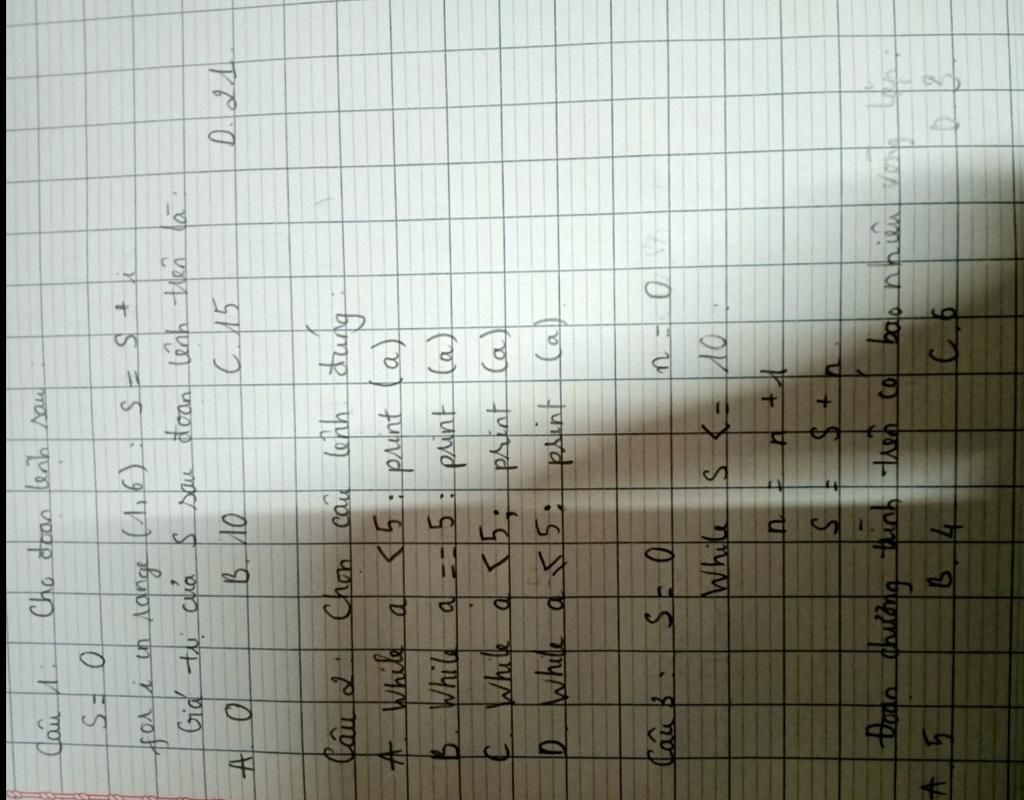 Câu 1: Cho đoạn lệnh sau:
S = 0
for i in range (1,6): S = S + i
Giá trị của S sau đoạn lệnh trên là:
A. 0 B. 10 C. 15 D. 21.
Câu 2: Chọn câu lệnh đúng:
A While a < 5: print (a)
B. While a == 5: print (a)
C. While a < 5; print (a)
D. While a ≤ 5: print (a)
Câu 3: S = 0 n = 0
While S <= 10:
n = n + 1
S = S + n
Đoạn chương trình trên có bao nhiêu vòng lặp.
A 5 B. 4 C. 6 D. 3